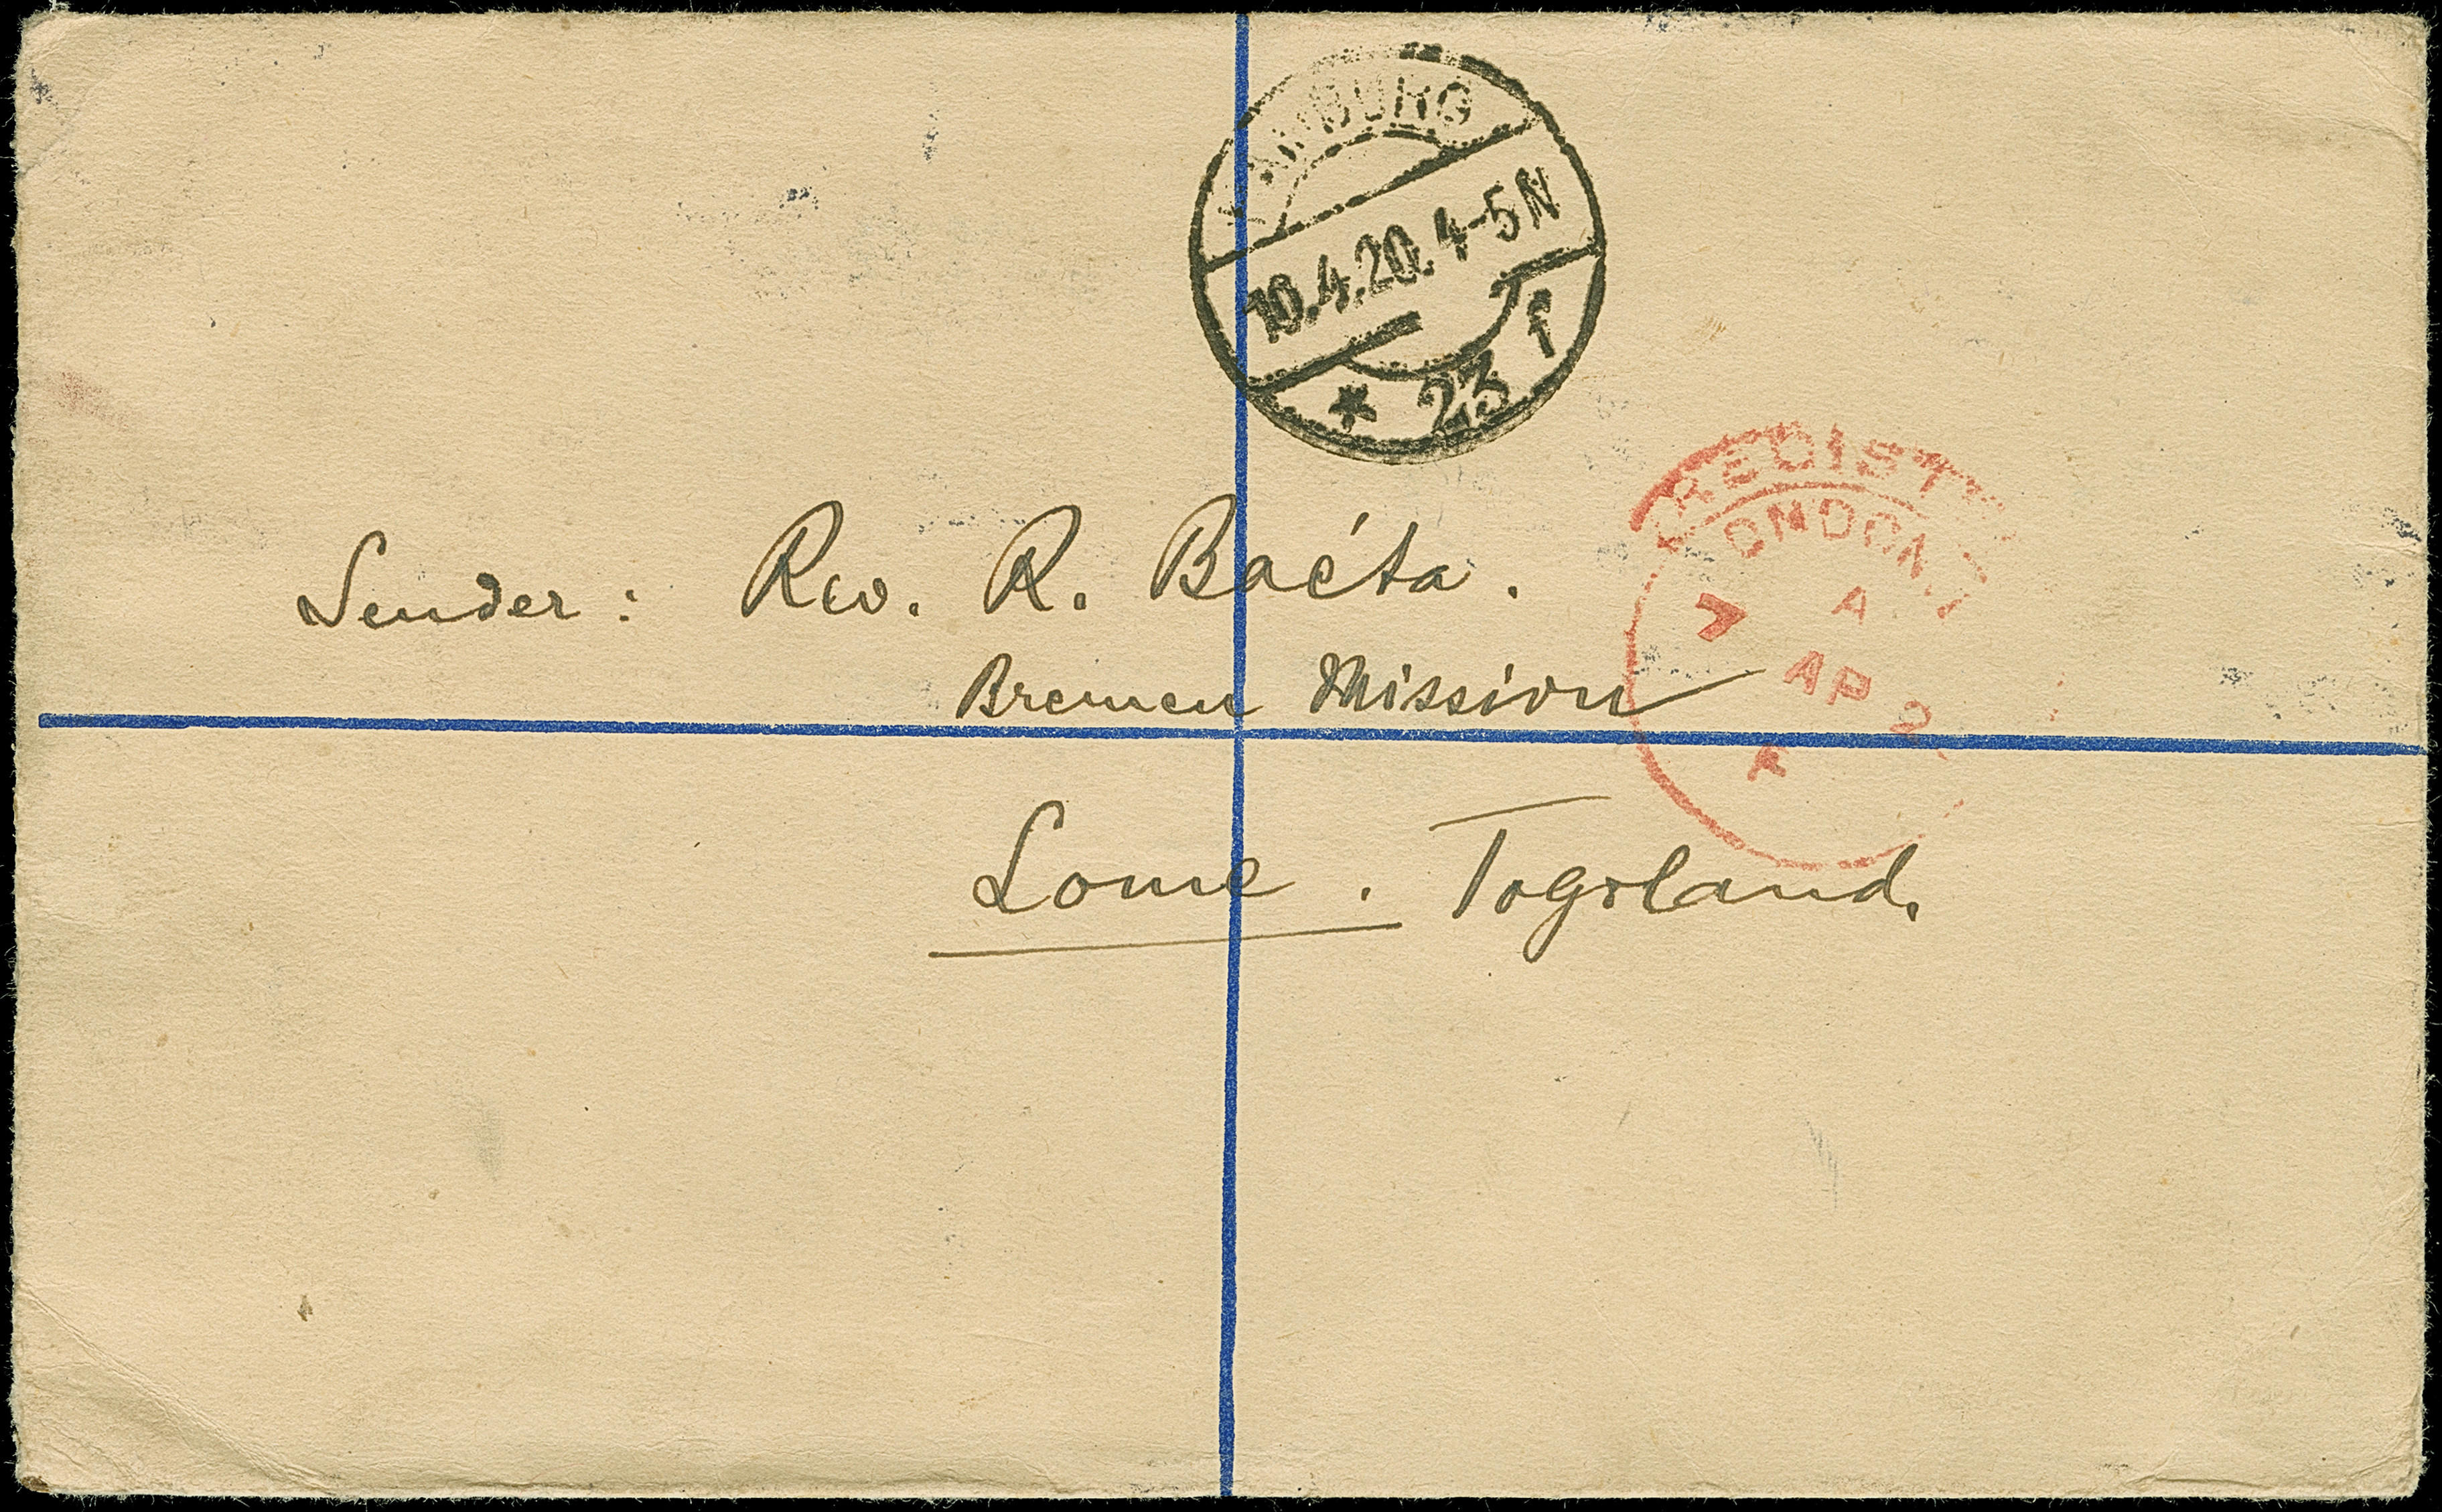 HAMBURG
10.4.20. 4-5 N
* 23 f
REGISTE
ONDON
A
7 AP 2
Sender: Rev. R. Baéta.
Bremen Mission
Lome. Togoland.